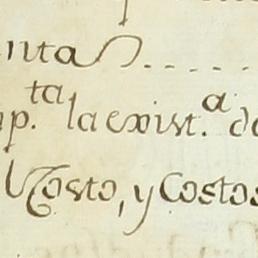 entas
mp.ta la exist.a de
Costo, y Costos